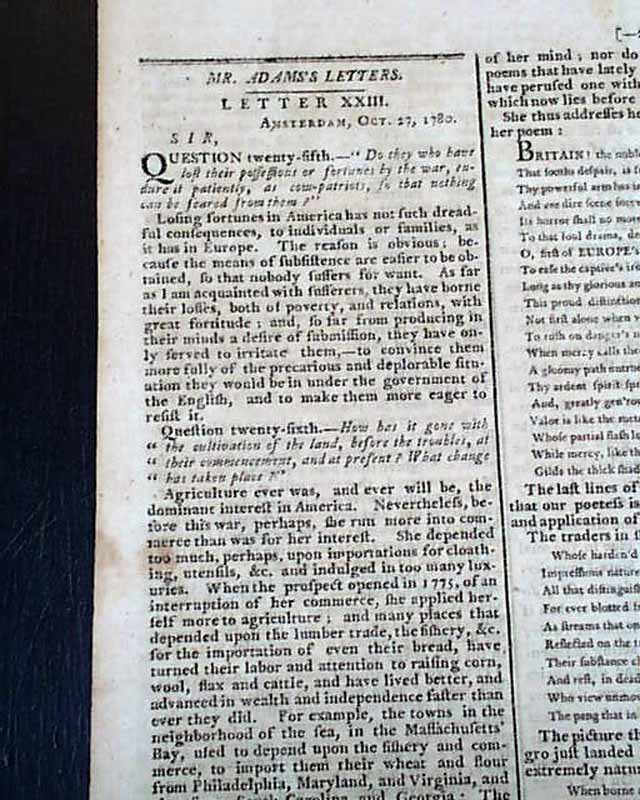 MR. ADAMS'S LETTERS.
LETTER XXIII.
AMSTERDAM, OCT. 27, 1780.
SIR,
QUESTION twenty-fifth.—" Do they who have
loſt their poſſeſſions or fortunes by the war, en-
dure it patiently, as com-patriots, ſo that nothing
can be feared from them ?"
Loſing fortunes in America has not ſuch dread-
ful conſequences, to individuals or families, as
it has in Europe. The reaſon is obvious; be-
cauſe the means of ſubſiſtence are eaſier to be ob-
tained, ſo that nobody ſuffers for want. As far
as I am acquainted with ſufferers, they have borne
their loſſes, both of poverty, and relations, with
great fortitude ; and, ſo far from producing in
their minds a deſire of ſubmiſſion, they have on-
ly ſerved to irritate them,—to convince them
more fully of the precarious and deplorable ſitu-
ation they would be in under the government of
the Engliſh, and to make them more eager to
reſiſt it.
Queſtion twenty-ſixth.—How has it gone with
" the cultivation of the land, before the troubles, at
" their commencement, and at preſent ? What change
" has taken place ?"
Agriculture ever was, and ever will be, the
dominant intereſt in America. Nevertheleſs, be-
fore this war, perhaps, ſhe run more into com-
merce than was for her intereſt. She depended
too much, perhaps, upon importations for cloath-
ing, utenſils, &c. and indulged in too many lux-
uries. When the proſpect opened in 1775, of an
interruption of her commerce, ſhe applied her-
ſelf more to agriculture ; and many places that
depended upon the lumber trade, the fiſhery, &c.
for the importation of even their bread, have
turned their labor and attention to raiſing corn,
wool, flax and cattle, and have lived better, and
advanced in wealth and independence faſter than
ever they did. For example, the towns in the
neighborhood of the ſea, in the Maſſachuſetts'
Bay, uſed to depend upon the fiſhery and com-
merce, to import them their wheat and flour
from Philadelphia, Maryland, and Virginia, and
South Carolina and Georgia : The
of her mind ; nor do
poems that have lately
have peruſed one with
which now lies before
She thus addreſſes he
her poem :
BRITAIN! the noble
That ſooths deſpair, is ſ
Thy powerful arm has
And
Its horror ſhall no more
To that foul drama,
O, firſt of EUROPE'S
To eaſe the captive's
Long as thy glorious
This proud diſtinction
Not firſt alone when
To ruſh on danger's
When mercy calls thee
A gloomy path
Thy ardent ſpirit
And, greatly gen'rous
Valor is like the
Whoſe partial flaſh
While mercy, like the
Gilds the thick ſhade
The laſt lines of
that our poeteſs is
and application of
The traders in
Whoſe harden'd
Impreſſions nature
All that diſtinguiſh
For ever blotted
As ſtreams that
Reflected on the
Their ſubſtance
And reſt, in dead
Who view unmov
The pang that is
The picture th
gro juſt landed
extremely natur
When borne